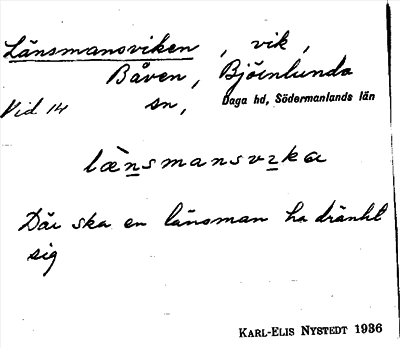 Länsmansviken, vik,
Båven, Björnlunda
Vid 14 sn, Daga hd, Södermanlands län
lànsmansvɩka
Där ska en länsman ha dränkt
sig
KARL-ELIS NYSTEDT 1936